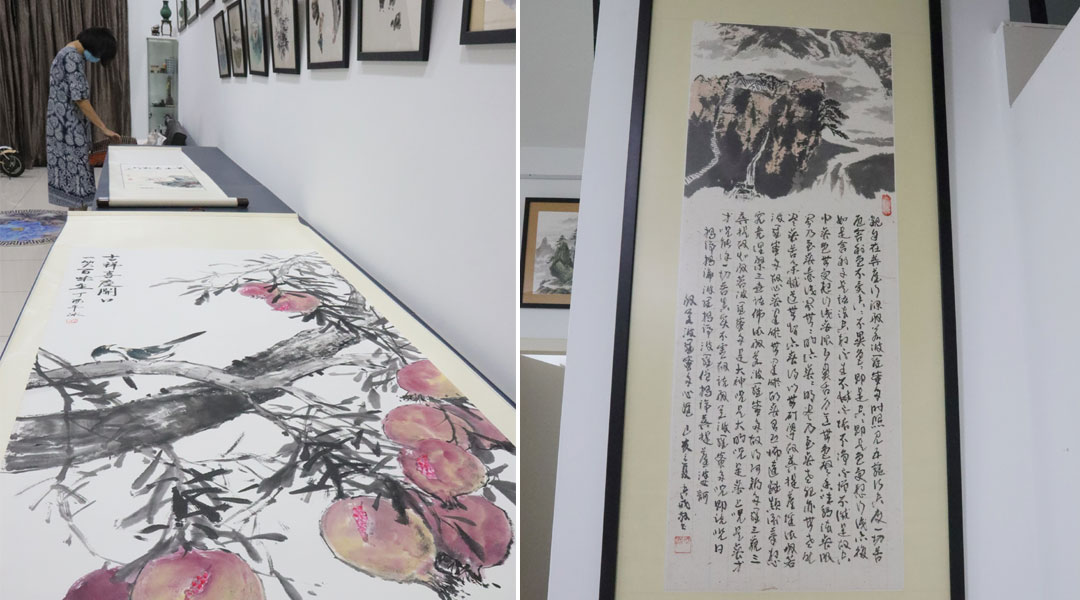 吉祥喜慶開口
一笑百
觀自在菩薩行深般若波羅蜜多時照見五蘊皆空度一切苦
厄舍利子色不異空空不異色色即是空空即是色受想行識亦復
如是舍利子是諸法空相不生不滅不垢不淨不增不減是故空
中無色無受想行識無眼耳鼻舌身意無色聲香味觸法無眼
界乃至無意識界無無明亦無無明盡乃至無老死亦無老死
盡無苦集滅道無智亦無得以無所得故菩提薩埵依般若
波羅蜜多故心無罣礙無罣礙故無有恐怖遠離顛倒夢想
究竟涅槃三世諸佛依般若波羅蜜多故得阿耨多羅三藐三
菩提故知般若波羅蜜多是大神咒是大明咒是無上咒是無等
等咒能除一切苦真實不虛故說般若波羅蜜多咒即說咒曰
揭諦揭諦波羅揭諦波羅僧揭諦菩提薩婆訶
般若波羅蜜多心經